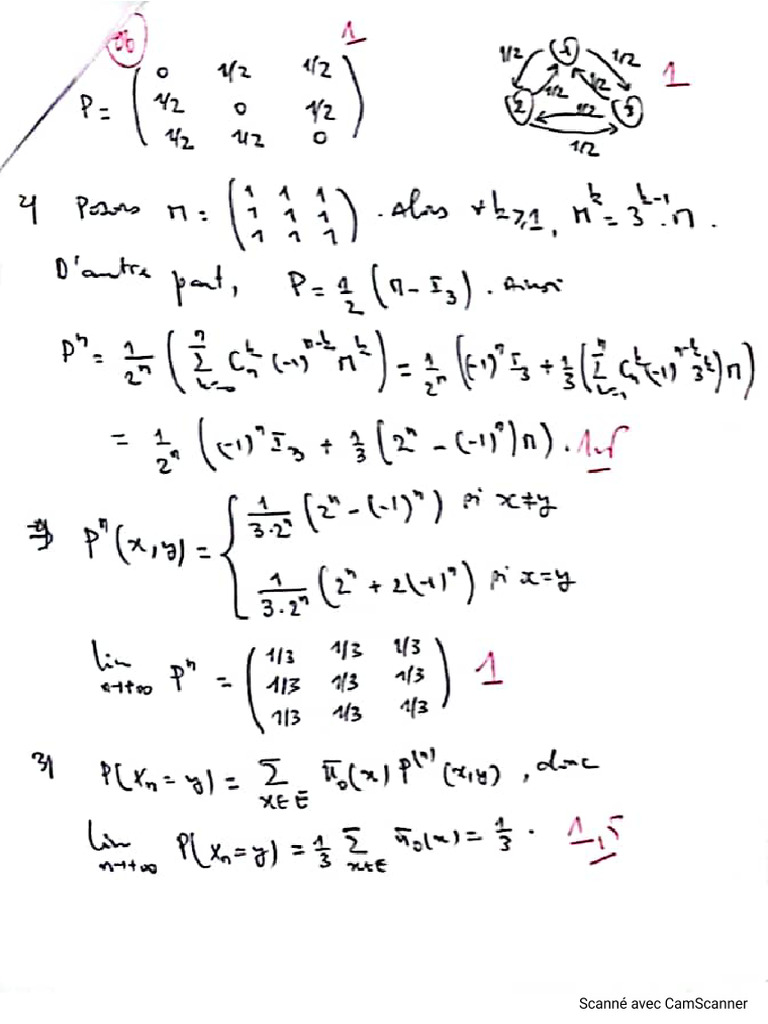 06
P = ( 0 1/2 1/2 ; 1/2 0 1/2 ; 1/2 1/2 0 ) 1
1 2 3 1/2 1/2 1/2 1/2 1/2 1/2 1
2) Posons M = ( 1 1 1 ; 1 1 1 ; 1 1 1 ). Alors ∀ k ≥ 1, M^k = 3^{k-1}.M.
D'autre part, P = 1/2 (M - I_3). Ainsi
P^n = 1/2^n ( ∑_{k=0}^n C_n^k (-1)^{n-k} M^k ) = 1/2^n ( (-1)^n I_3 + 1/3 ( ∑_{k=1}^n C_n^k (-1)^{n-k} 3^k ) M )
= 1/2^n ( (-1)^n I_3 + 1/3 (2^n - (-1)^n) M ). 1,5
⇒ P^n(x,y) = { 1/(3.2^n) (2^n - (-1)^n) si x≠y
1/(3.2^n) (2^n + 2(-1)^n) si x=y
lim_{n→+∞} P^n = ( 1/3 1/3 1/3 ; 1/3 1/3 1/3 ; 1/3 1/3 1/3 ) 1
3) P(X_n = y) = ∑_{x∈E} π_0(x) P^{(n)}(x,y), donc
lim_{n→+∞} P(X_n = y) = 1/3 ∑_{x∈E} π_0(x) = 1/3. 1,5
Scanné avec CamScanner